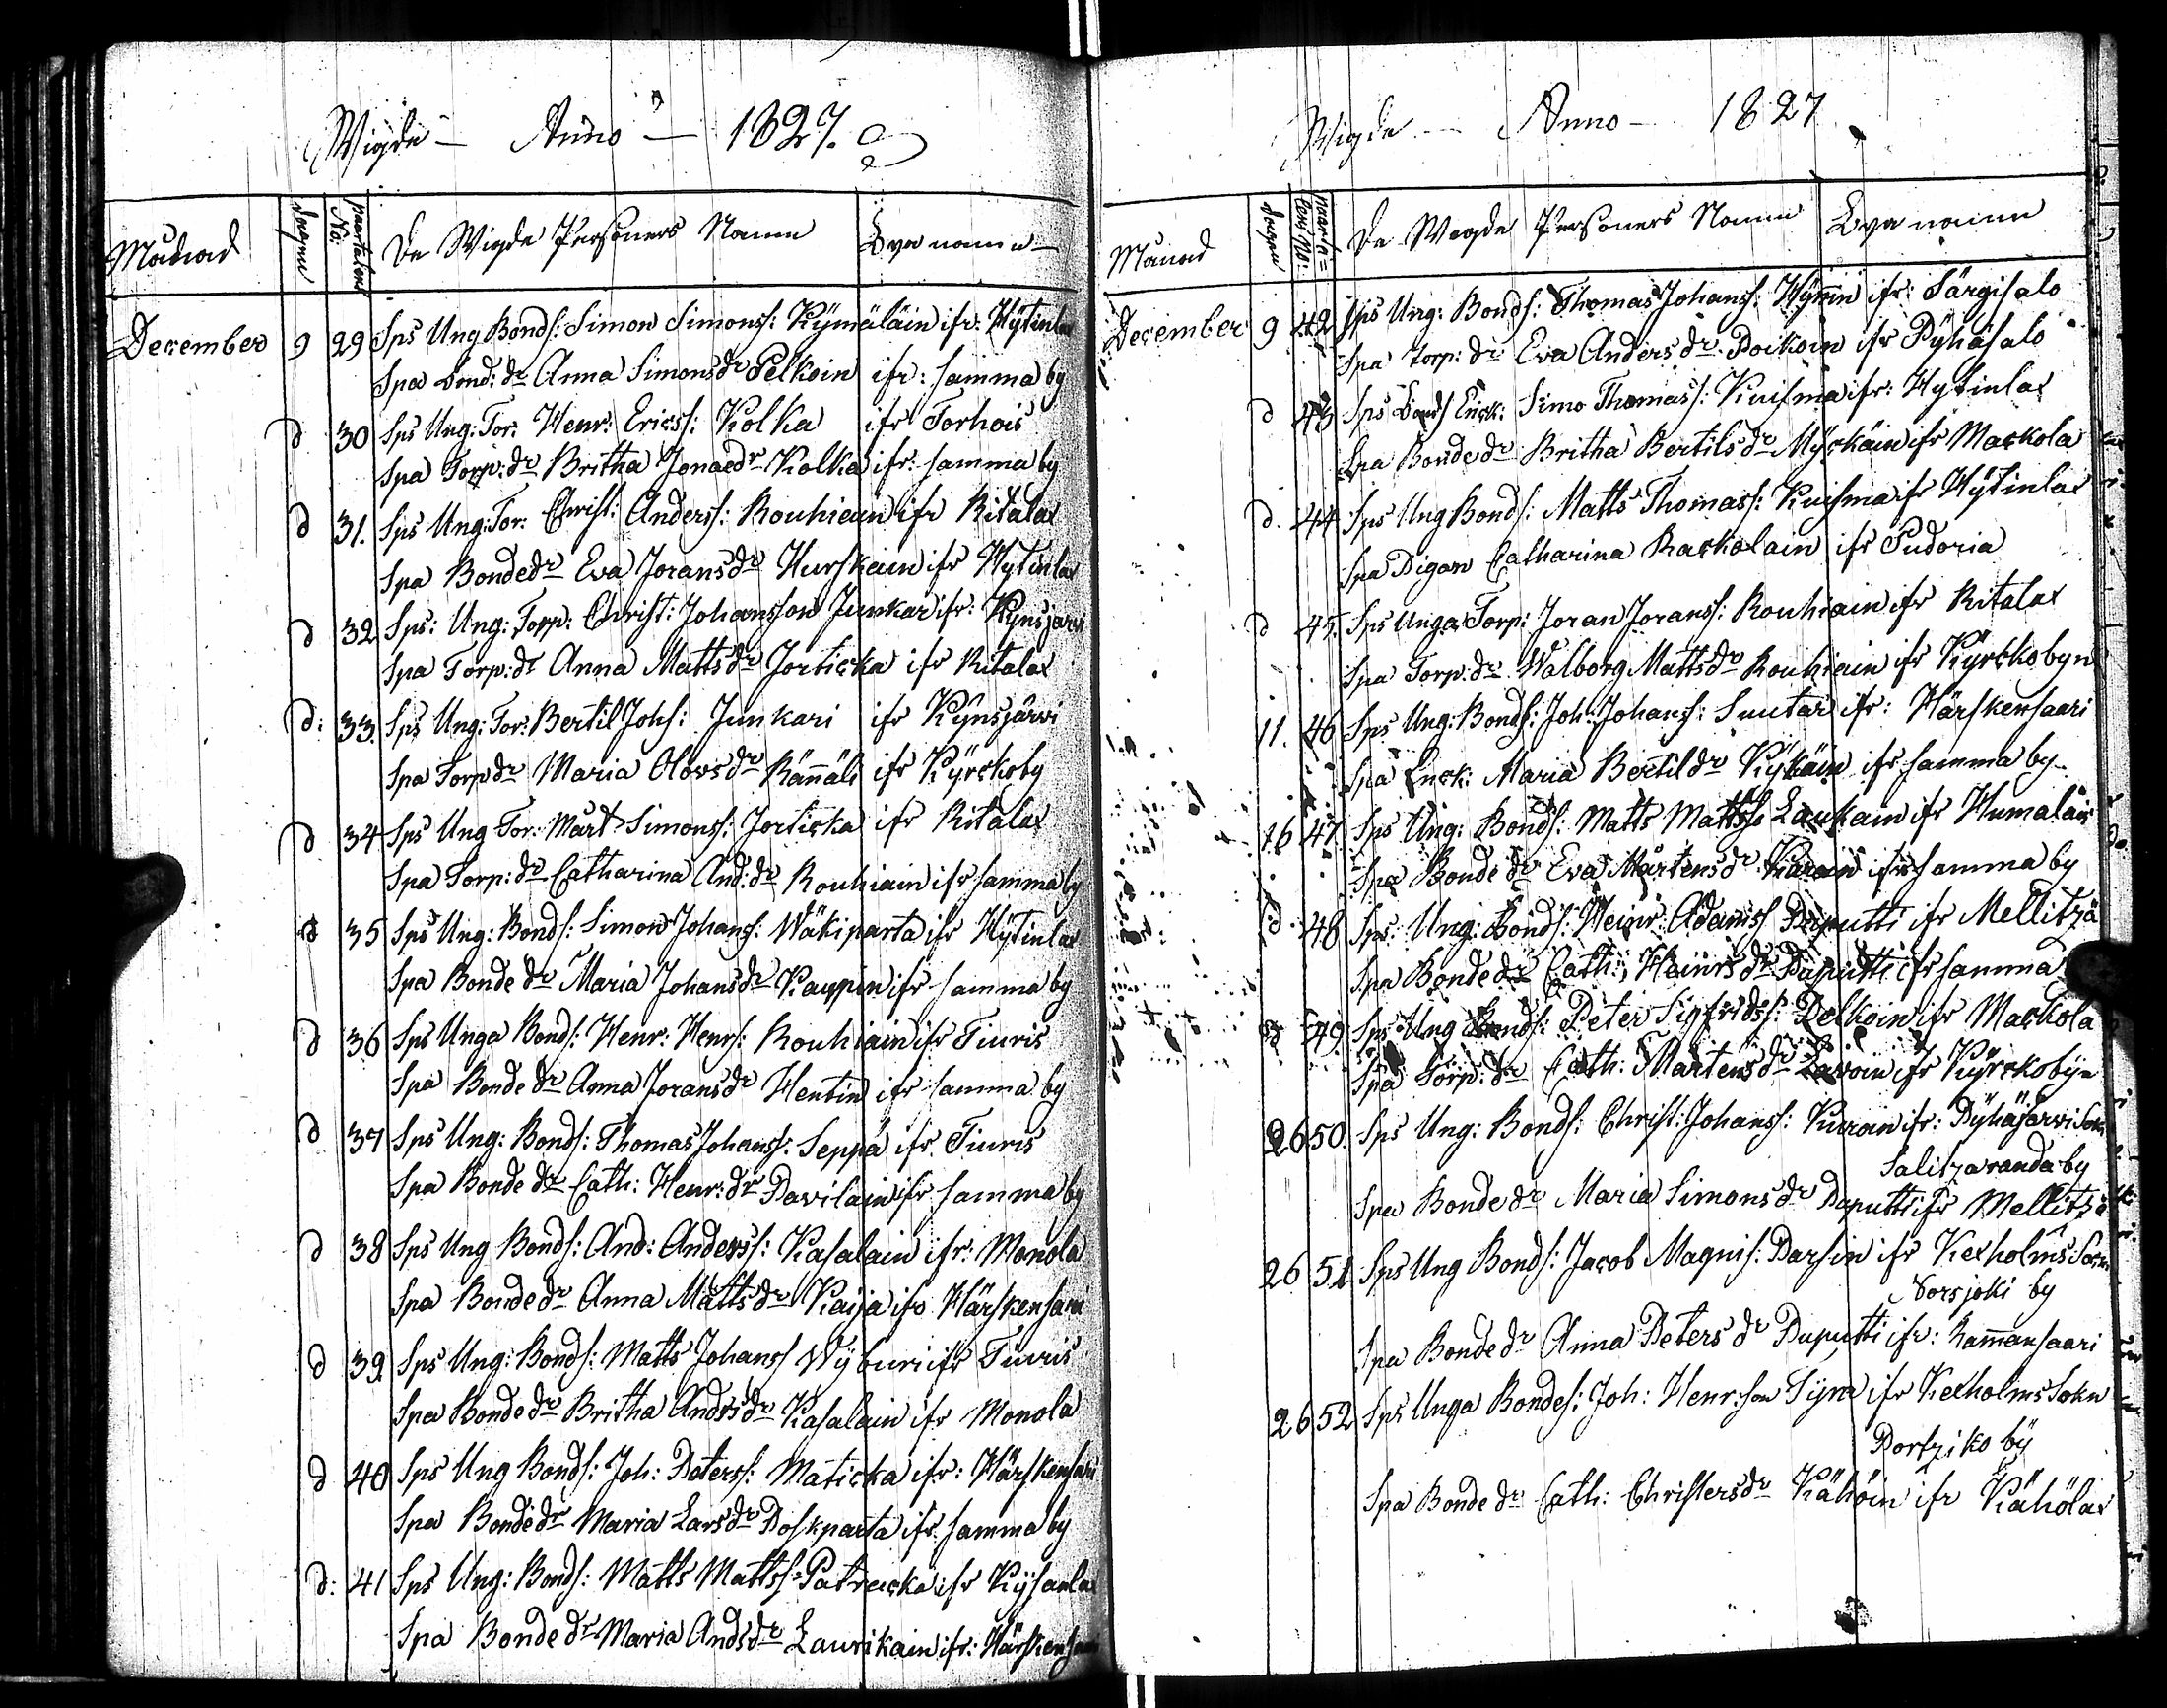 Wigde — Anno — 1827.
Månad dagen paartalens No. De Wigde Personers Namn Byanamn
December 9 29 Sps Ung Bonds: Simon Simons: Kymäläin ifr: Hytinlax
Spa Bond: dr Anna Simonsdr Pelkoin ifr: samma by
d 30 Sps Ung: Tor: Henr: Erics: Kolka ifr Torhois
Spa Torp: dr Britha Jonaedr Kolka ifr: samma by
d 31. Sps Ung: Tor: Christ: Anders: Rouhiain ifr Ritalax
Spa Bondedr Eva Joransdr Hurskain ifr Hytinlax
d 32 Sps: Ung: Torp: Christ: Johansson Junkar ifr: Kynsjarvi
Spa Torp: dr Anna Mattsdr Jorticka ifr Ritalax
d: 33. Sps Ung: Tor: Bertil Johs: Junkari ifr Kynsjärvi
Spa Torpdr Maria Olovsdr Rännäli ifr Kyrckoby
d 34 Sps Ung Tor: Mårt Simons: Jorticka ifr Ritalax
Spa Torp: dr Catharina And: dr Rouhiain ifr samma by
d 35 Sps Ung: Bonds: Simon Johans: Wäkiparta ifr Hytinlax
Spa Bonde dr Maria Johansdr Kauppin ifr samma by
d 36 Sps Unga Bonds: Henr: Henrs: Rouhiain ifr Tiuris
Spa Bonde dr Anna Joransdr Hentin ifr samma by
d 37 Sps Ung: Bonds: Thomas Johans: Seppä ifr Tiuris
Spa Bonde dr Cath: Henr: dr Pavilain ifr samma by
d 38 Sps Ung Bonds: And: Anders: Kasalain ifr: Monola
Spa Bondedr Anna Mattsdr Kaija ifr Härskensari
d 39. Sps Ung: Bonds: Matts Johans Wyburi ifr Tiuris
Spa Bondedr Britha Andrsdr Kasalain ifr Monola
d 40 Sps Ung Bonds: Joh: Peters: Maticka ifr: Härskensari
Spa Bondedr Maria Larsdr Poskparta ifr samma by
d: 41 Sps Ung: Bonds: Matts Matts: Patrecka ifr Kysanlax
Spa Bonde dr Maria Andsdr Laurikain ifr: Härskensari
Wigde — Anno — 1827
Månad dagen paarta= lens No: De Wigde Personers Namn Bya namn
December 9 42 Sps Ung: Bonds: Thomas Johans: Hynnin ifr: Särgisalo
Spa Torp: dr Eva Andersdr Poikoin ifr Pyhäsalo
d 43 Sps Bonds Enck: Simo Thomas: Kuisma ifr: Hytinlax
Spa Bondedr Britha Bertilsdr Myckäin ifr Mackola
d. 44 Sps Ung Bonds: Matts Thomas: Kuisma ifr Hytinlax
Spa Pigan Catharina Rackolain ifr Pudoria
d 45. Sps Unga Torp: Joran Jorans: Rouhiain ifr Ritalax
Spa Torp: dr Walborg Mattsdr Rouhiain ifr Kyrckobyn
11. 46 Sps Ung: Bonds: Joh: Johans: Suutar ifr: Härskensaari
Spa Enck: Maria Bertildr Kykäin ifr samma by
16 47. Sps Ung: Bonds: Matts Matts Laukain ifr Humalais
Spa Bonde dr Eva Mårtensdr Karain ifr samma by
d. 48 Sps: Ung: Bonds: Heinr: Adams Puputti ifr Mellitzä
Spa Bonde dr Cath: Heinrsdr Puputti ifr samma
d 49 Sps Ung Bonds: Peter Sigfrids: Pelkoin ifr Mackola
Spa Torp: dr Cath: Mårtensdr Lavoin ifr Kyrckobyn
26 50. Sps Ung: Bonds: Christ: Johans: Kuroin ifr: Pyhäjärvi Sokn
Salitzaranda by
Spa Bondedr Maria Simonsdr Puputti ifr Mellitzä
26 51 Sps Ung Bonds: Jacob Magnis: Parsin ifr Kexholms Sokn
Norsjoki by
Spa Bonde dr Anna Petersdr Puputti ifr: Rammansaari
26 52 Sps Unga Bondes: Joh: Henr: son Tyni ifr Kexholms Sokn
Portziko by
Spa Bonde dr Cath: Christersdr Kähöin ifr Kähölax